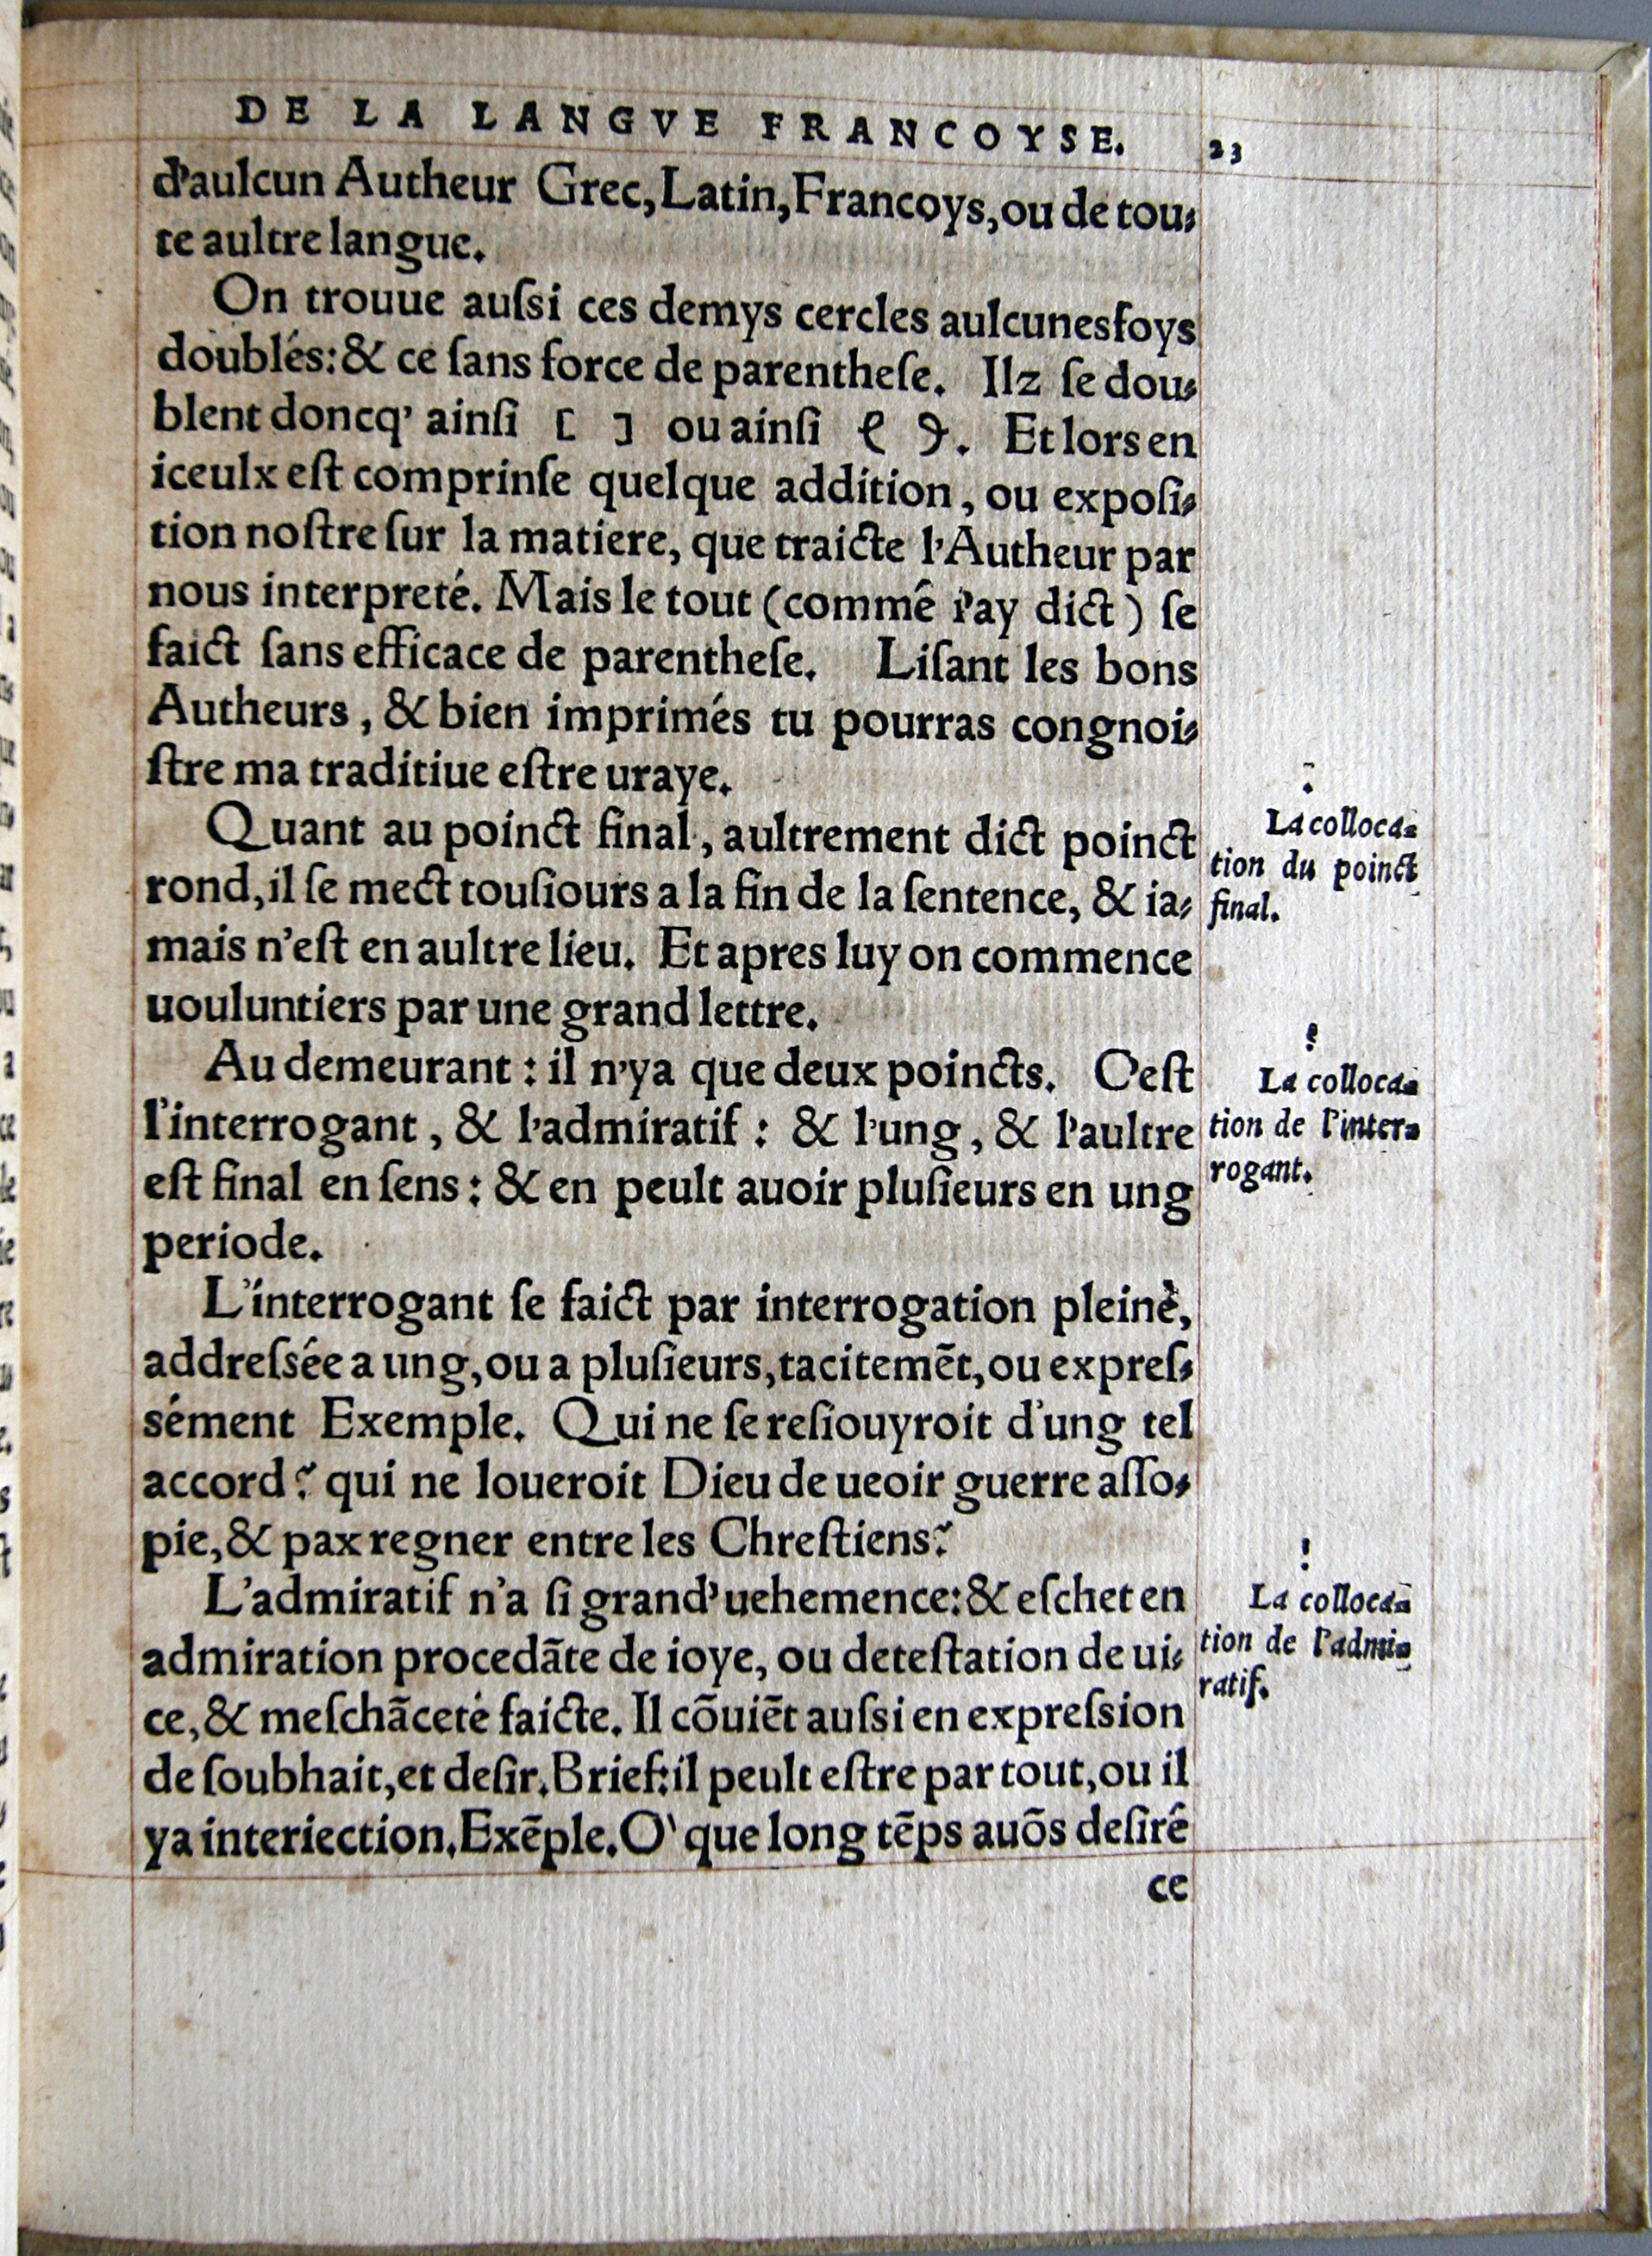 DE LA LANGVE FRANCOYSE. 23
d'aulcun Autheur Grec, Latin, Francoys, ou de tou-
te aultre langue.
On trouue auſsi ces demys cercles aulcunesfoys
doublés: & ce ſans force de parentheſe. Ilz ſe dou-
blent doncq' ainſi [ ] ou ainſi . Et lors en
iceulx eſt comprinſe quelque addition, ou expoſi-
tion noſtre ſur la matiere, que traicte l'Autheur par
nous interpreté. Mais le tout (commê i'ay dict) ſe
faict ſans efficace de parentheſe. Liſant les bons
Autheurs, & bien imprimés tu pourras congnoi-
ſtre ma traditiue eſtre uraye.
Quant au poinct final, aultrement dict poinct
rond, il ſe mect touſiours a la fin de la ſentence, & ia-
mais n'eſt en aultre lieu. Et apres luy on commence
uouluntiers par une grand lettre.
.
La colloca-
tion du poinct
final.
Au demeurant: il n'ya que deux poincts. C'eſt
l'interrogant, & l'admiratif: & l'ung, & l'aultre
eſt final en ſens: & en peult auoir pluſieurs en ung
periode.
?
La colloca-
tion de l'inter-
rogant.
L'interrogant ſe faict par interrogation pleinè,
addreſsée a ung, ou a pluſieurs, tacitemẽt, ou expreſ-
sément Exemple. Qui ne ſe reſiouyroit d'ung tel
accord? qui ne loueroit Dieu de ueoir guerre aſſo-
pie, & pax regner entre les Chreſtiens?
L'admiratif n'a ſi grand' uehemence: & eſchet en
admiration procedãte de ioye, ou deteſtation de ui-
ce, & meſchãceté faicte. Il cõuiẽt auſsi en expreſsion
de ſoubhait, et deſir. Brief: il peult eſtre par tout, ou il
ya interiection. Exẽple. O' que long tẽps auõs deſiré
!
La colloca-
tion de l'admi-
ratif.
ce